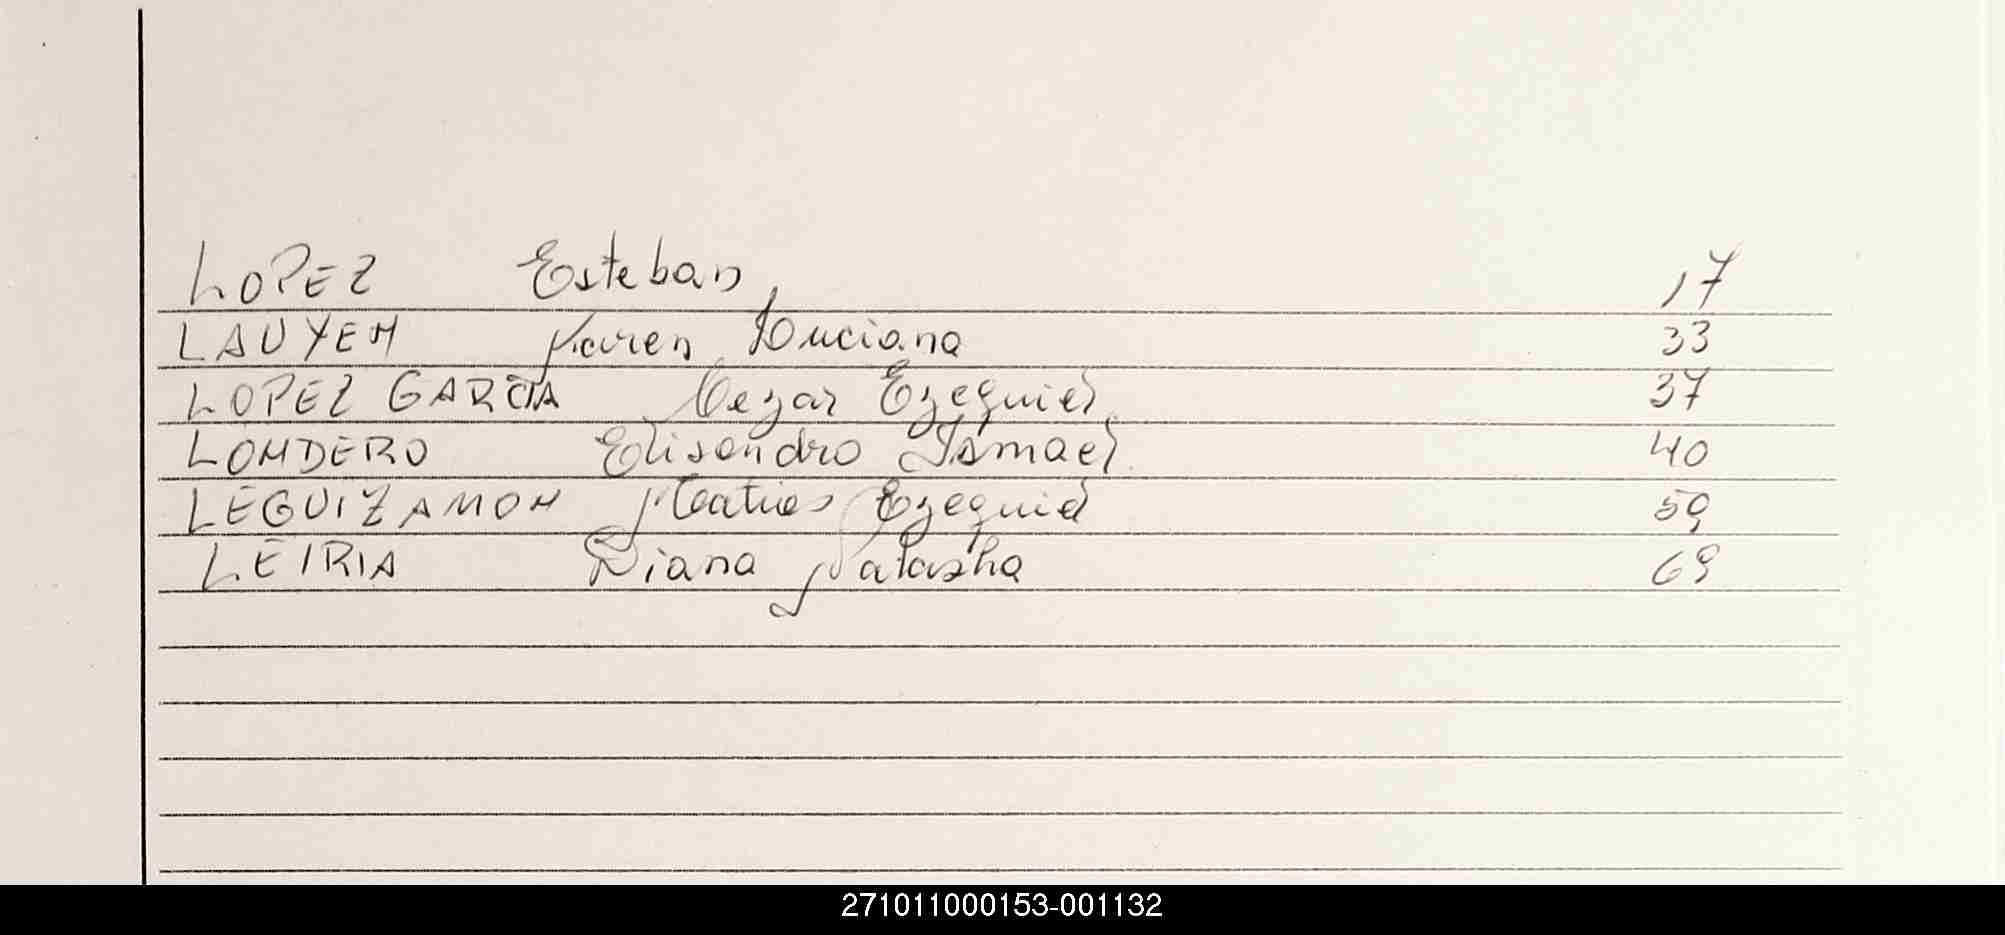 LOPEZ Esteban 17
LAUYEM Karen Luciana 33
LOPEZ GARCIA Cezar Ezequiel 37
LONDERO Elisandro Ismael 40
LEGUIZAMON Matias Ezequiel 59
LEIRIA Diana Natasha 69
271011000153-001132